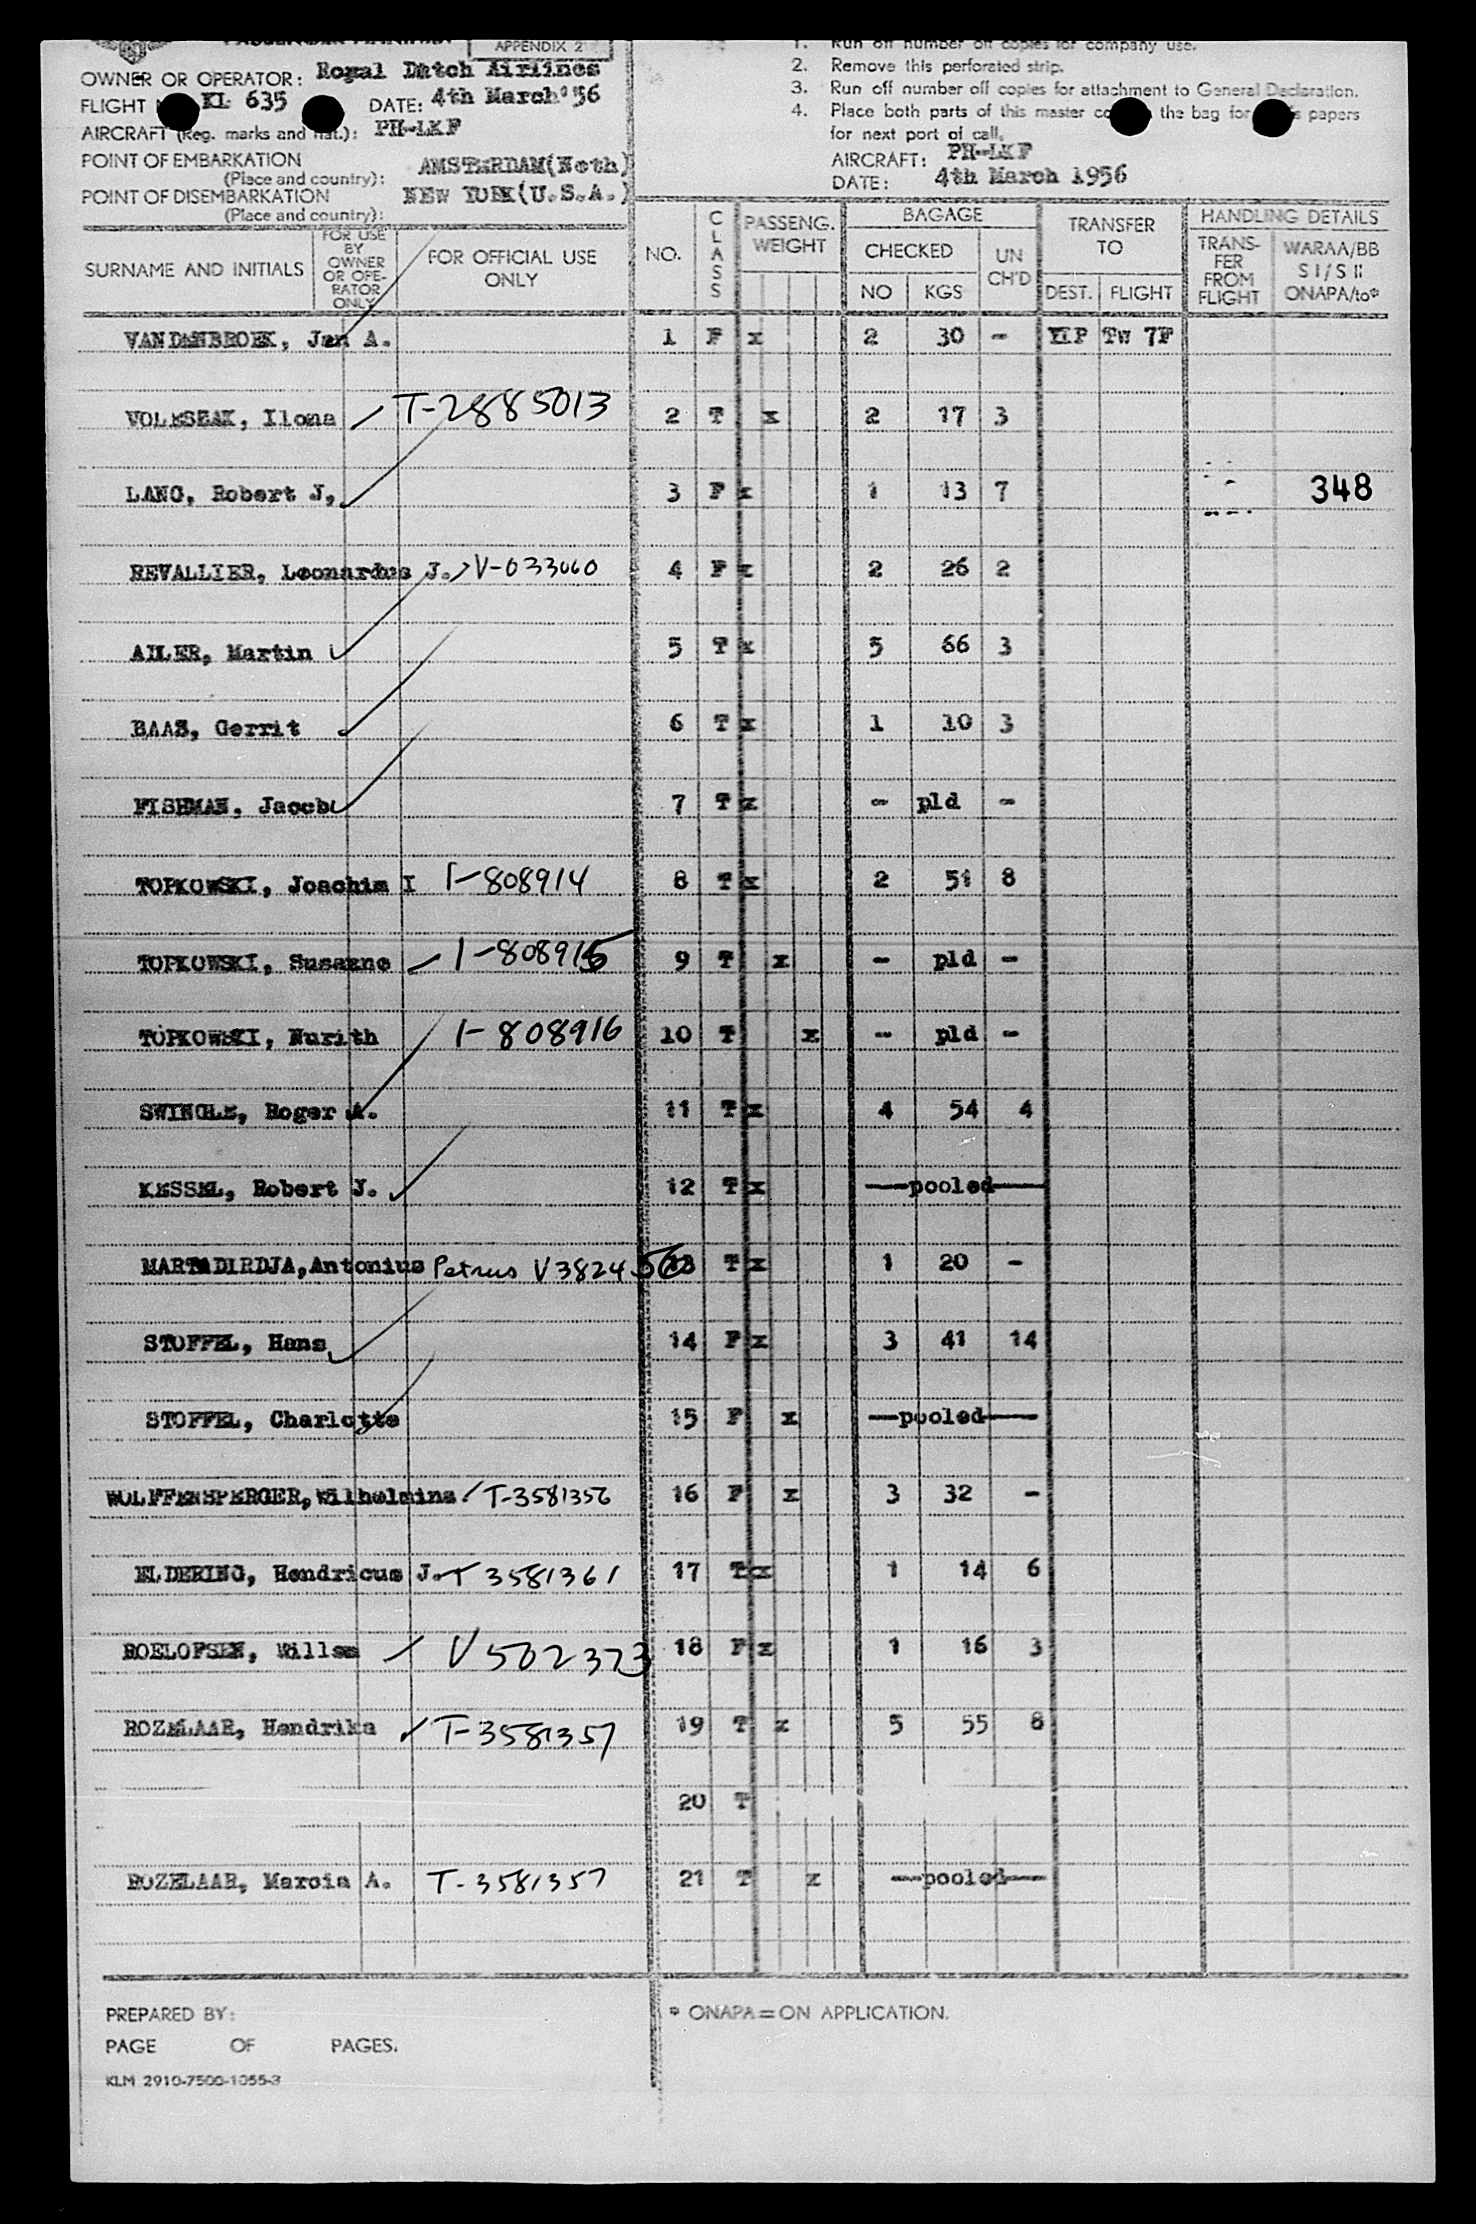 APPENDIX 2
OWNER OR OPERATOR: Royal Dutch Airlines
FLIGHT KL 635 DATE: 4th March '56
AIRCRAFT (Reg. marks and nat.): PH-LKF
POINT OF EMBARKATION
(Place and country): AMSTERDAM(Neth)
POINT OF DISEMBARKATION
(Place and country): NEW YORK(U.S.A.)
1. Run off number off copies for company use.
2. Remove this perforated strip.
3. Run off number off copies for attachment to General Declaration.
4. Place both parts of this master the bag for papers
for next port of call.
AIRCRAFT: PH-LKF
DATE: 4th March 1956
SURNAME AND INITIALS FOR USE BY OWNER OR OPE-RATOR ONLY FOR OFFICIAL USE ONLY NO. CLASS PASSENG. WEIGHT BAGAGE CHECKED NO KGS UN CH'D TRANSFER TO DEST. FLIGHT HANDLING DETAILS TRANS-FER FROM FLIGHT WARAA/BB S I/S II ONAPA/to*
VANDENBROEK, Jan A. 1 F x 2 30 - TW 7F
Ilona T-2885013 2 T x 2 17 3
LANG, Robert J, 3 F x 1 13 7 348
REVALLIER, Leonardus J. V-033060 4 F x 2 26 2
ADLER, Martin 5 T x 5 66 3
BAAS, Gerrit 6 T x 1 10 3
FISHMAN, Jacob 7 T x - pld -
TOPKOWSKI, Joachim I T-808914 8 T x 2 51 8
TOPKOWSKI, Susanne 1-808915 9 T x - pld -
TOPKOWSKI, Nurith 1-808916 10 T x - pld -
SWINGLE, Roger A. 11 T x 4 54 4
KESSEL, Robert J. 12 T x -pooled-
MARTADIRDJA, Antonius Petrus V382456 13 T x 1 20 -
STOFFEL, Hans 14 F x 3 41 14
STOFFEL, Charlotte 15 F x -pooled-
WOLFFENSPERGER, Wilhelmina T-3581356 16 F x 3 32 -
ELDERING, Hendricus J. T 3581361 17 T x 1 14 6
ROELOFSEN, Willem V502373 18 F x 1 16 3
ROZELAAR, Hendrika T-3581357 19 T x 5 55 8
20 T
ROZELAAR, Marcia A. T-3581357 21 T x -pooled-
PREPARED BY:
PAGE OF PAGES.
KLM 2910-7500-1055-3
* ONAPA=ON APPLICATION.